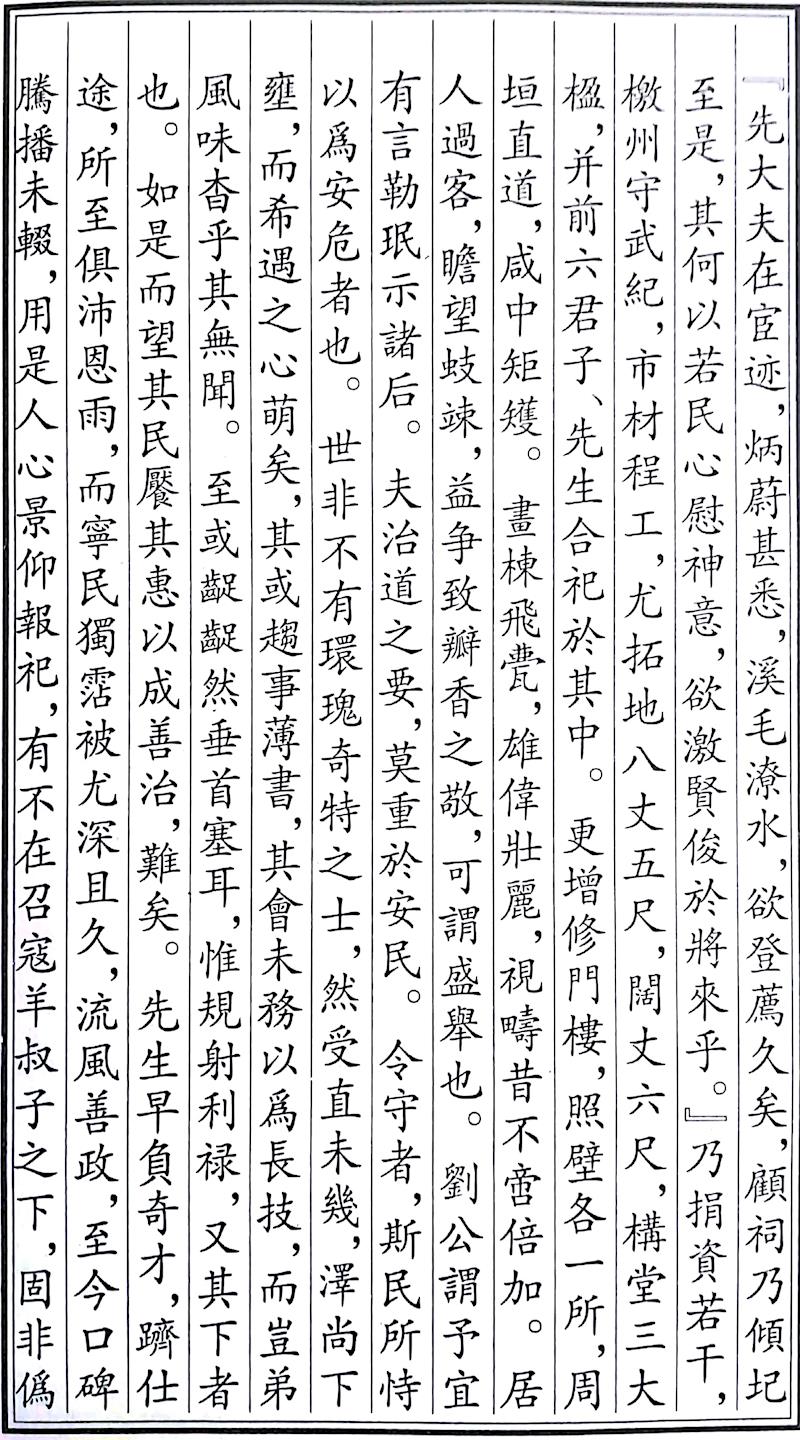 『先大夫在宦迹，炳蔚甚悉，溪毛潦水，欲登薦久矣，顧祠乃傾圮
至是，其何以若民心慰神意，欲激賢俊於將來乎。』乃捐資若干，
檄州守武紀，市材程工，尤拓地八丈五尺，闊丈六尺，構堂三大
楹，并前六君子、先生合祀於其中。更增修門樓，照壁各一所，周
垣直道，咸中矩矱。畫棟飛甍，雄偉壯麗，視疇昔不啻倍加。居
人過客，瞻望蚑竦，益争致瓣香之敬，可謂盛舉也。劉公謂予宜
有言勒珉示諸后。夫治道之要，莫重於安民。令守者，斯民所恃
以爲安危者也。世非不有環瑰奇特之士，然受直未幾，澤尚下
壅，而希遇之心萌矣，其或趨事薄書，其會未務以爲長技，而豈弟
風味杳乎其無聞。至或齪齪然垂首塞耳，惟規射利禄，又其下者
也。如是而望其民饜其惠以成善治，難矣。先生早負奇才，躋仕
途，所至俱沛恩雨，而寧民獨霑被尤深且久，流風善政，至今口碑
騰播未輟，用是人心景仰報祀，有不在召寇羊叔子之下，固非僞